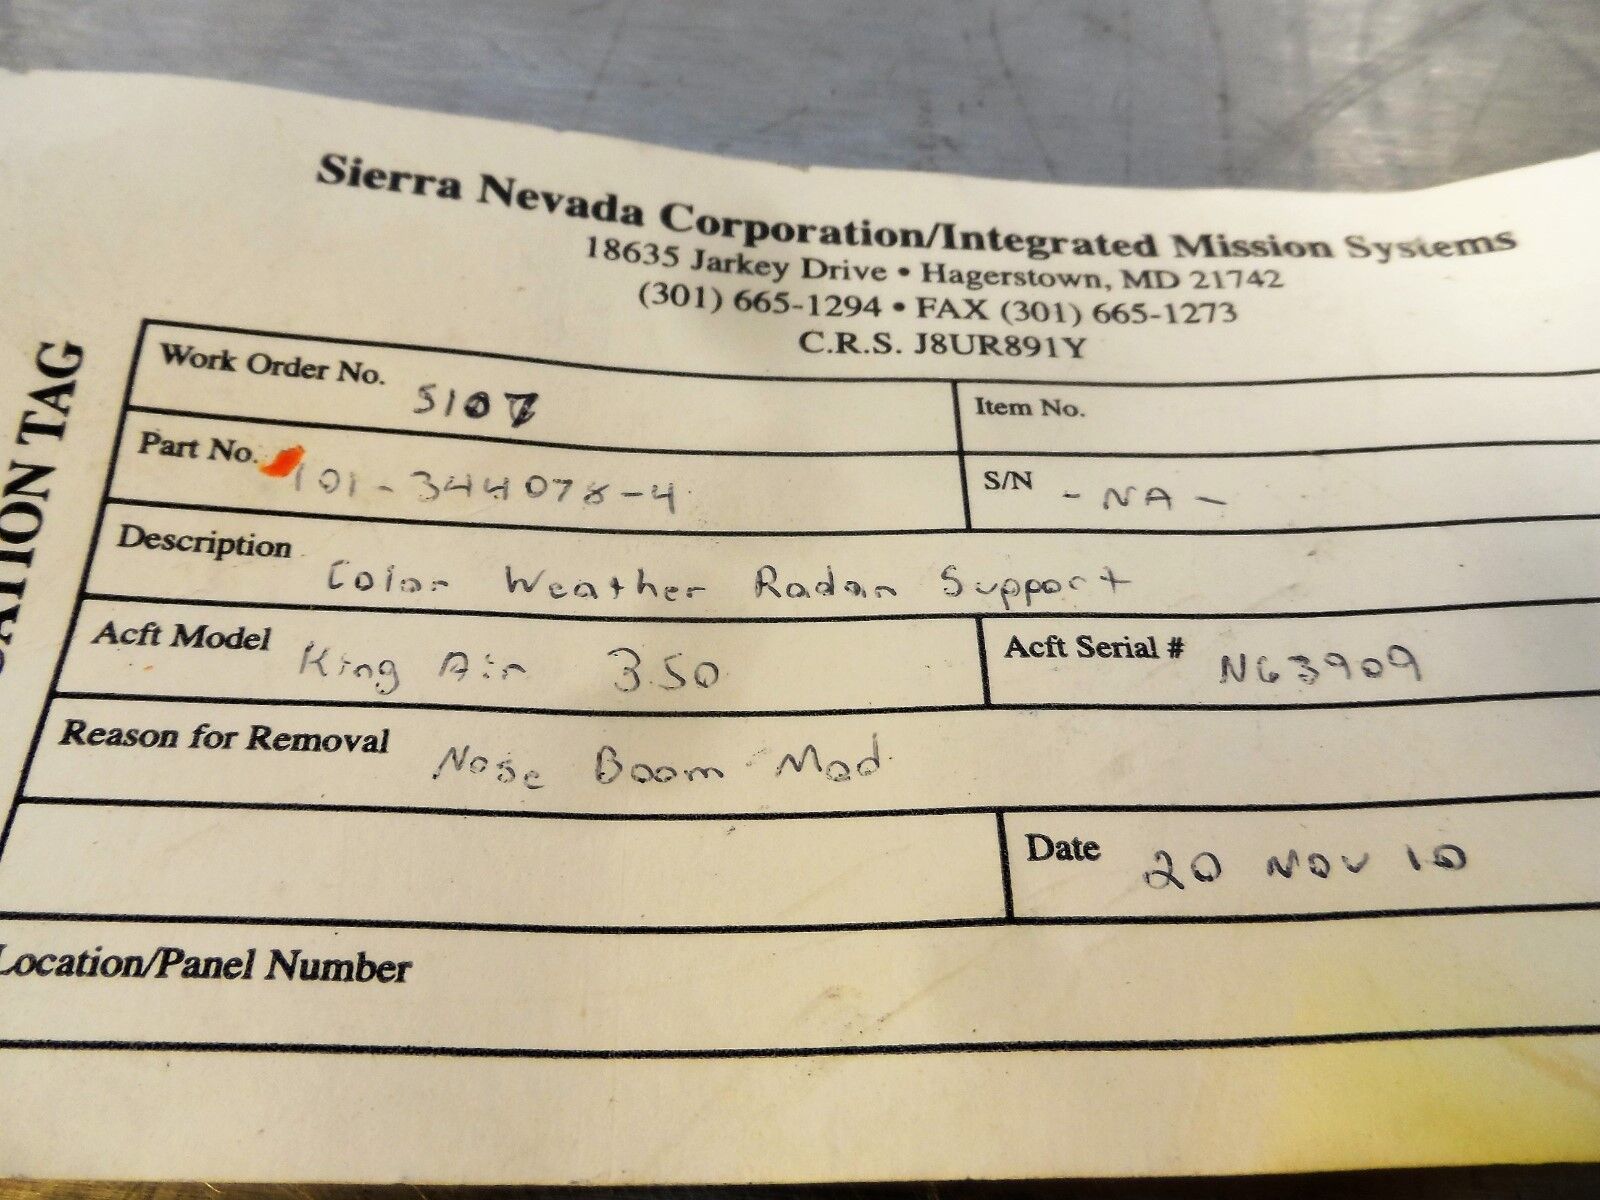 Sierra Nevada Corporation/Integrated Mission Systems
18635 Jarkey Drive • Hagerstown, MD 21742
(301) 665-1294 • FAX (301) 665-1273
C.R.S. J8UR891Y
Work Order No. 5107
Item No.
Part No. 101-344078-4
S/N - NA -
Description Color Weather Radar Support
Acft Model King Air 350
Acft Serial # N63909
Reason for Removal Nose Boom Mod
Date 20 NOV 10
Location/Panel Number
TAG